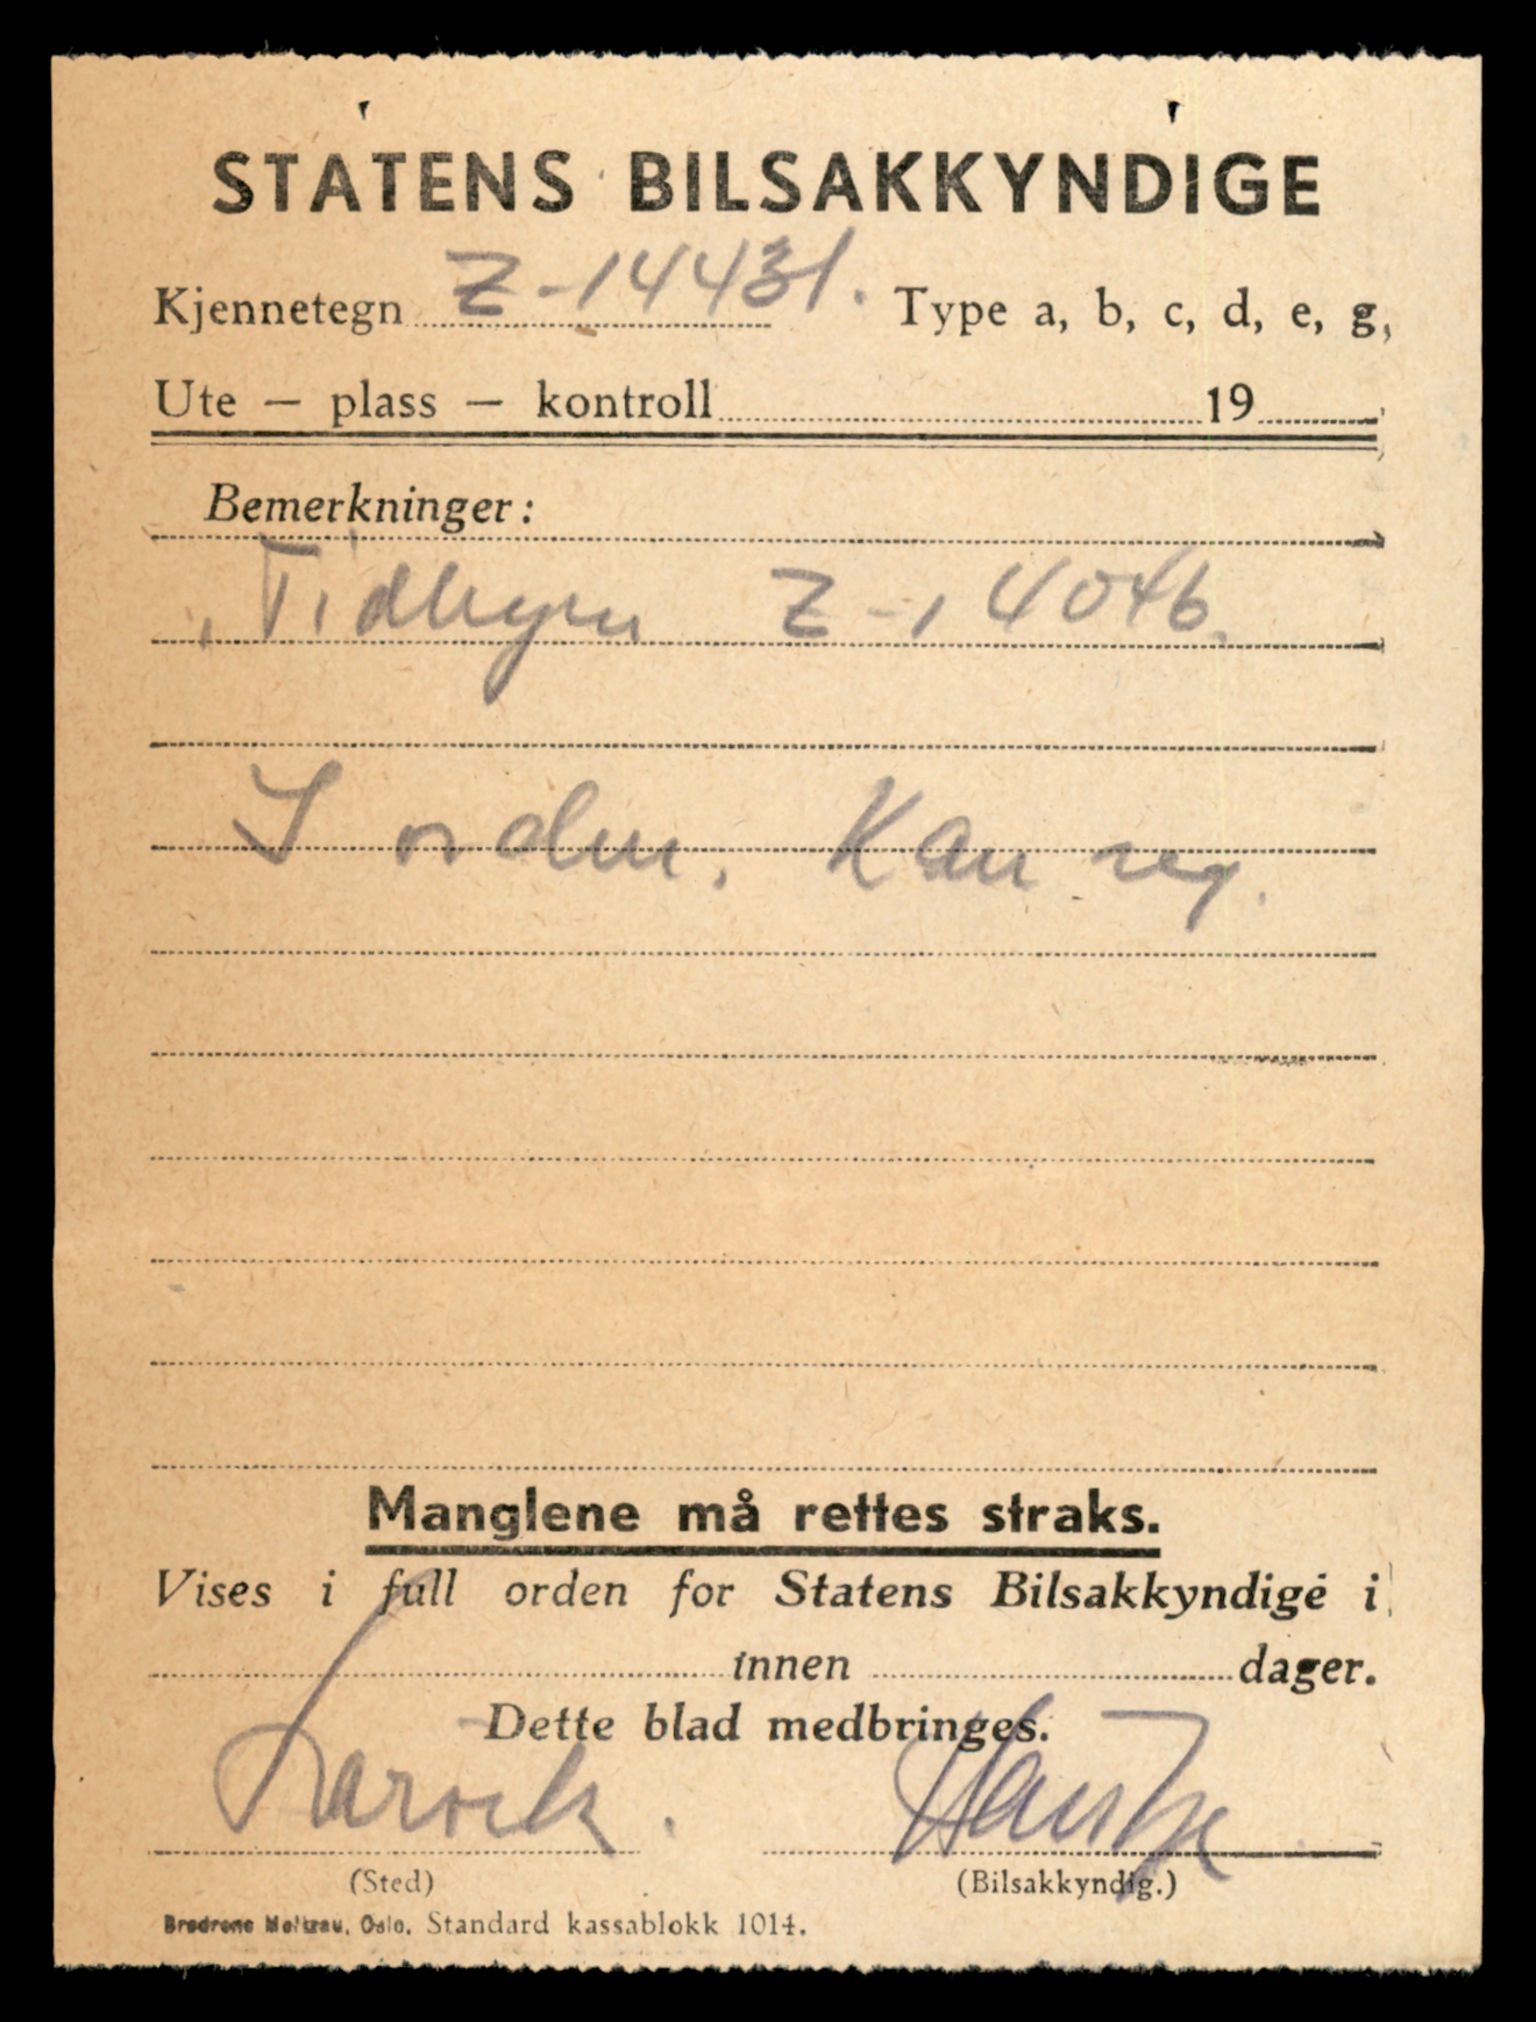 STATENS BILSAKKYNDIGE
Kjennetegn Z-14431. Type a, b, c, d, e, g,
Ute — plass — kontroll 19
Bemerkninger:
Z-14046.
I orden. Kan reg.
Manglene må rettes straks.
Vises i full orden for Statens Bilsakkyndige i
innen dager.
Dette blad medbringes.
Larvik.
(Sted) (Bilsakkyndig.)
Oslo. Standard kassablokk 1014.